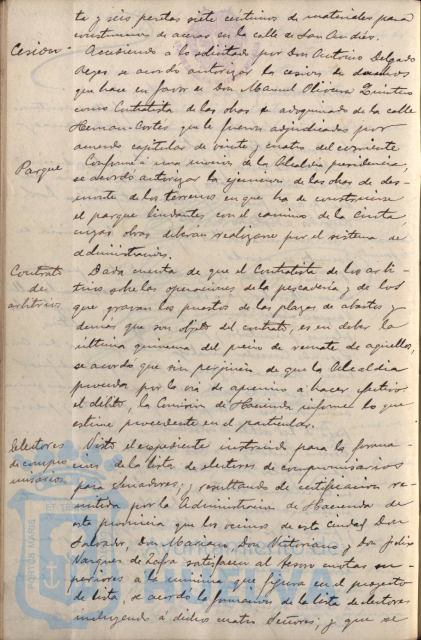 te y seis pesetas siete centimos de materiales para
construccion de aceras en la calle de San Andrés.
Cesion
Accediendo a lo solicitado por Don Antonio Delgado
Reyes se acordó autorizar la cesion de derechos
que hace en favor de Don Manuel Oliveira Quintero
como Contratista de las obras de adoquinado de la calle
Hernan Cortés que le fueron adjudicadas por
acuerdo capitular de veinte y cuatro del corriente
Parque
Conforme á una mocion de la Alcaldia presidencia,
se acordó autorizar la ejecucion de las obras de des-
monte de los terrenos en que ha de construirse
el parque lindantes con el camino de la Cinta
cuyas obras deberán realizarse por el sistema de
administracion.
Contrata
de
arbitrios
Dada cuenta de que el Contratista de los arbi-
trios sobre las operaciones de la pescaderia y de los
que gravan los puestos de las plazas de abastos y
demas que son objeto del contrato, es en deber la
ultima quincena del precio de remate de aquellos,
se acordó que sin perjuicio de que la Alcaldia
proceda por la via de apremio a hacer efectivo
el débito, la Comision de Hacienda informe lo que
estime procedente en el particular.
Electores
de compro
misarios
Visto el expediente instruido para la forma-
cion de la lista de electores de compromisarios
para Senadores, y resultando de certificacion re-
mitida por la Administracion de Hacienda de
esta provincia que los vecinos de esta Ciudad Don
Salvador, don Mariano, Don Victoriano y don Felix
Vazquez de Zafra satisfacen al tesoro cuotas su-
periores a la minima que figura en el proyecto
de lista se acordó la formacion de la lista de electores
incluyendo á dichos cuatro Señores, y que se